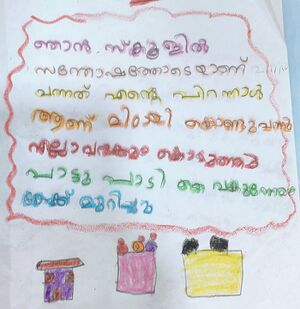 ഞാൻ സ്കൂളിൽ
സന്തോഷത്തോടെയാണ്
വന്നത് എന്റെ പിറന്നാൾ
ആണ് മിഠായി കൊണ്ടുവന്നു
എല്ലാവർക്കും കൊടുത്തു
പാട്ടു പാടി
കേക്ക് മുറിച്ചു